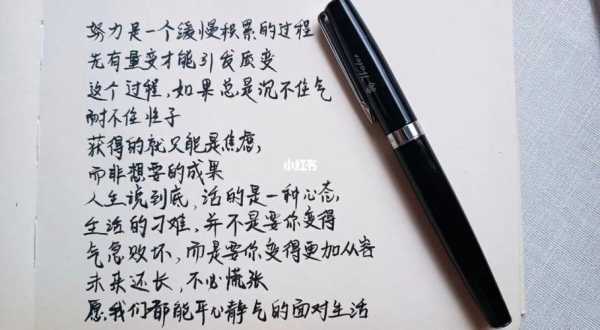 努力是一个缓慢积累的过程
先有量变才能引发质变
这个过程,如果总是沉不住气
耐不住性子
获得的就只能是焦虑,
而非想要的成果
小红书
人生说到底,活的是一种心态,
生活的刁难,并不是要你变得
气急败坏,而是要你变得更加从容
未来还长,不必慌张
愿我们都能平心静气的面对生活